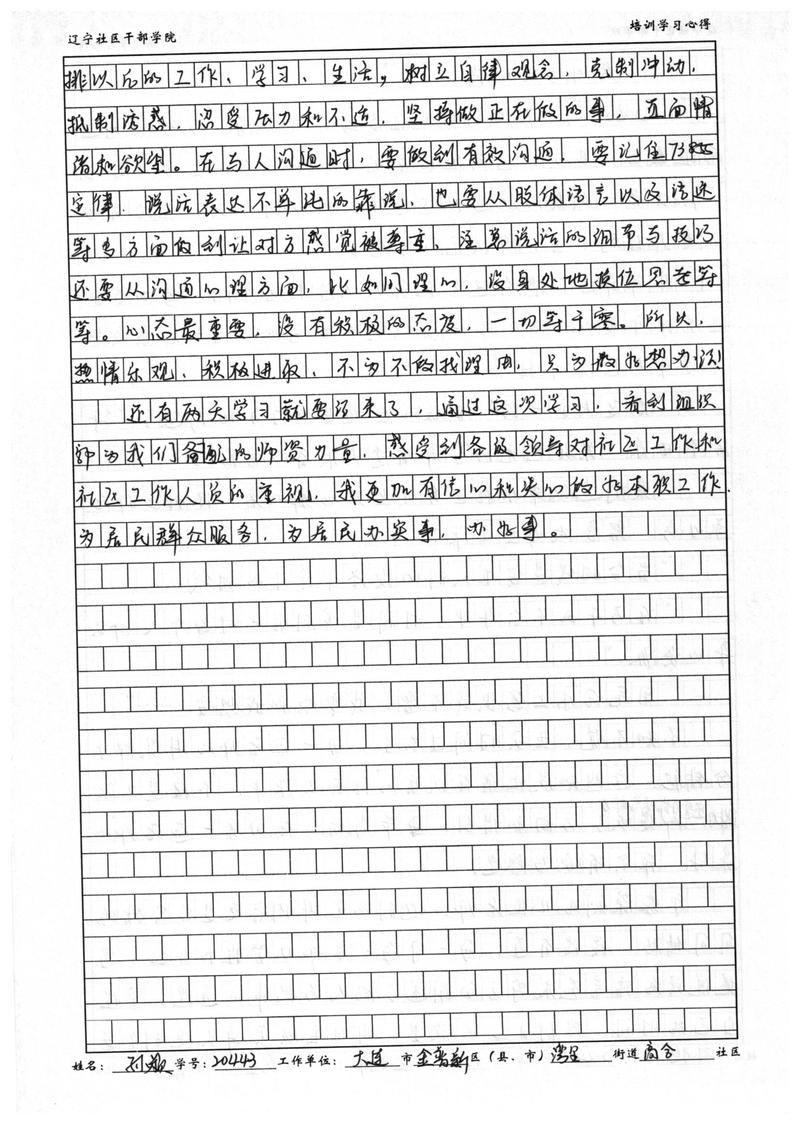 辽宁社区干部学院
培训学习心得
排以后的工作、学习、生活，树立自律观念，克制冲动，
抵制诱惑，忍受压力和不适，坚持做正在做的事，直面情
绪和欲望。在与人沟通时，要做到有效沟通，要记住73855
定律，说话表达不单纯的靠说，也要从肢体语言以及语速
等多方面做到让对方感觉被尊重，注意说话的细节与技巧
还要从沟通心理方面，比如同理心，设身处地换位思考等
等。心态最重要，没有积极的态度，一切等于零。所以，
热情乐观、积极进取、不为不做找理由，只为做好想办法！
还有两天学习就要结束了，通过这次学习，看到组织
部为我们备配的师资力量，感受到各级领导对社区工作和
社区工作人员的重视，我更加有信心和决心做好本职工作，
为居民群众服务，为居民办实事，办好事。
姓名：孙 学号：20443 工作单位：大连市金普新区（县、市）湾里街道 社区